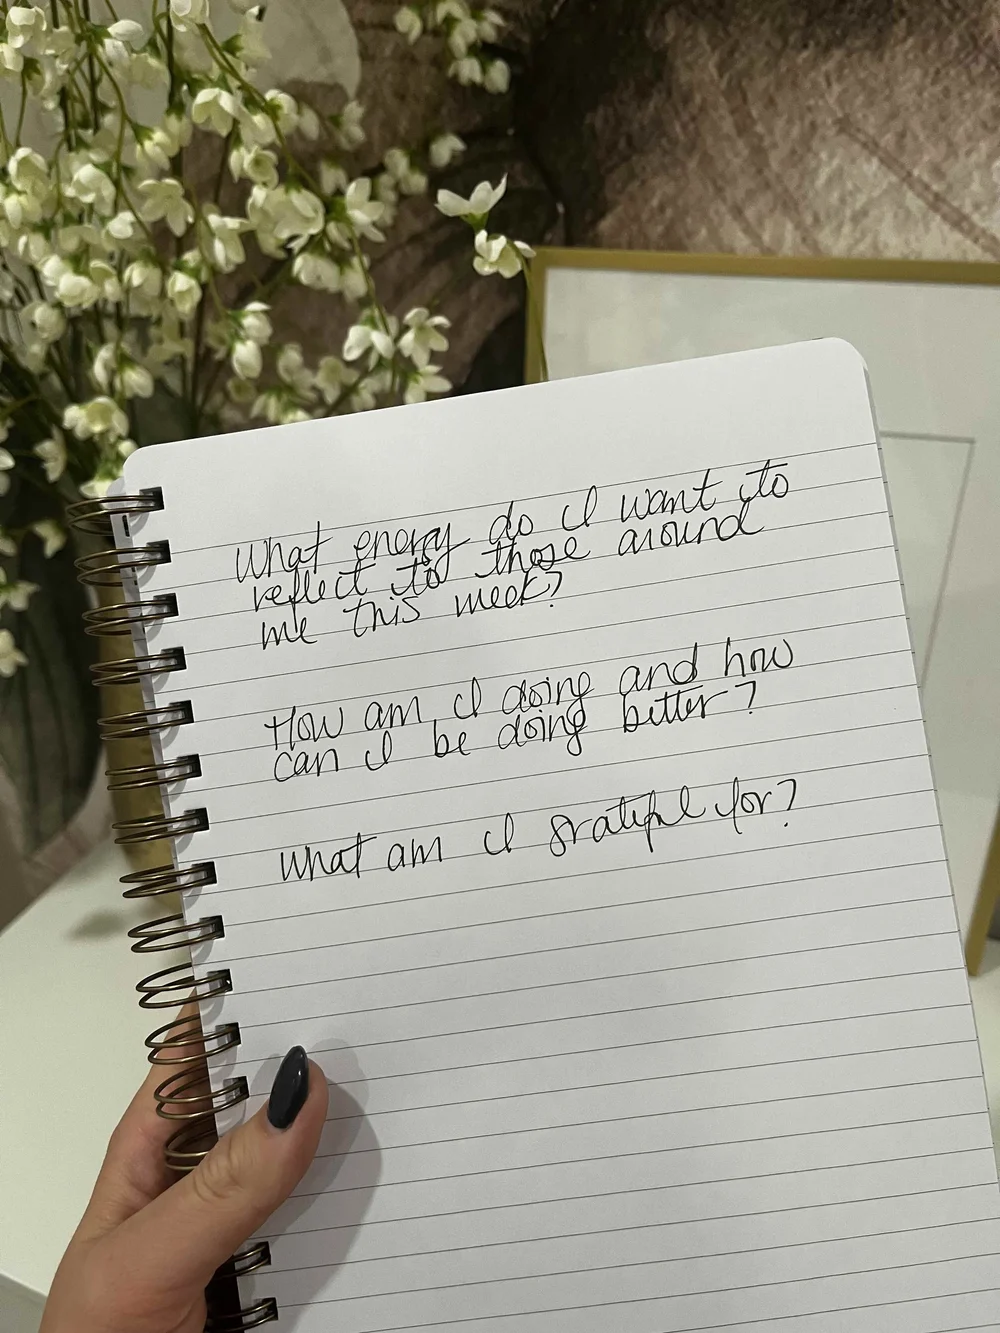 What energy do I want to
reflect to those around
me this week?
How am I doing and how
can I be doing better?
What am I grateful for?